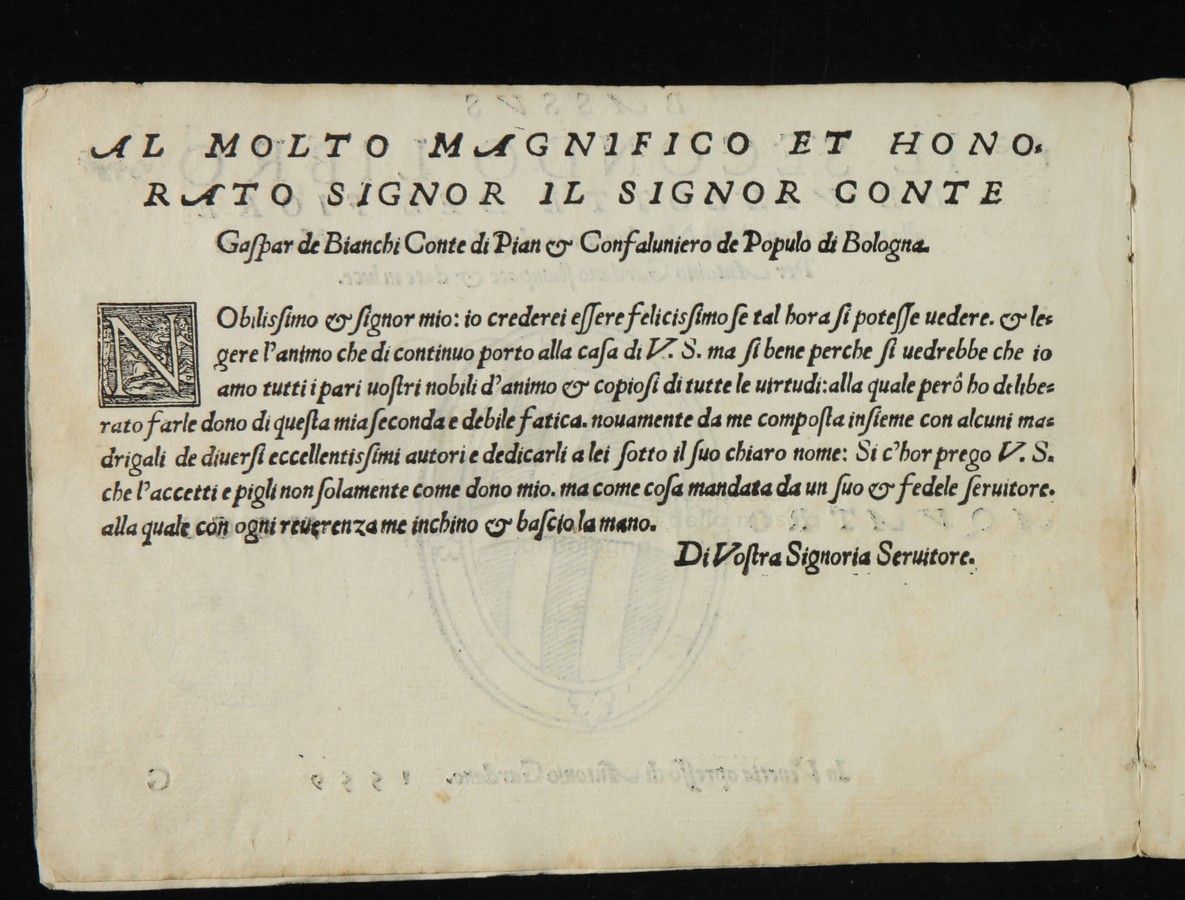 AL MOLTO MAGNIFICO ET HONO-
RATO SIGNOR IL SIGNOR CONTE
Gaſpar de Bianchi Conte di Pian & Confaluniero de Populo di Bologna.
NObilisſimo & ſignor mio: io crederei eſſere felicisſimo ſe tal hora ſi poteſſe uedere. & le=
gere l'animo che di continuo porto alla caſa di V. S. ma ſi bene perche ſi uedrebbe che io
amo tutti i pari uoſtri nobili d'animo & copioſi di tutte le uirtudi: alla quale però ho delibe=
rato farle dono di queſta mia ſeconda e debile fatica. nouamente da me compoſta inſieme con alcuni ma=
drigali de diuerſi eccellentisſimi autori e dedicarli a lei ſotto il ſuo chiaro nome: Si c'hor prego V. S.
che l'accetti e pigli non ſolamente come dono mio. ma come coſa mandata da un ſuo & fedele ſeruitore.
alla quale con ogni reuerenza me inchino & baſcio la mano.
Di Voſtra Signoria Seruitore.